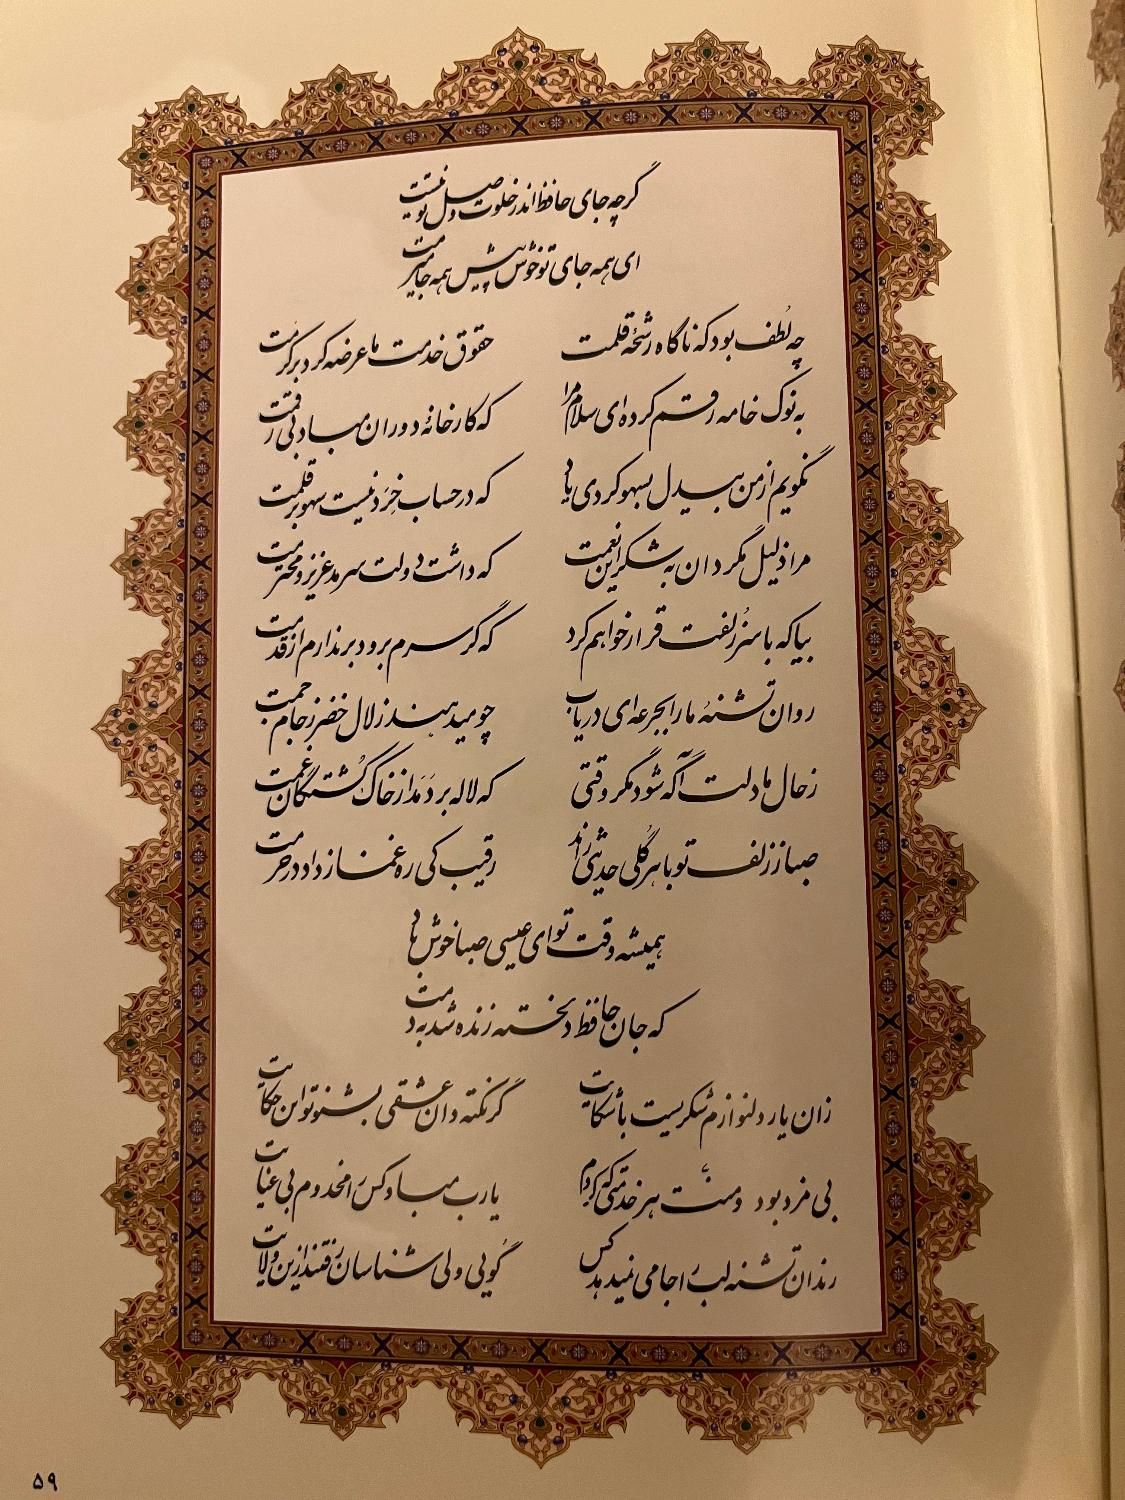 گرچه جای حافظ اندر خلوت وصل تو نیست
ای همه جای تو خوش پیش همه جا میرمت
چه لُطف بود که ناگاه رشحهٔ قلمت حقوق خدمت ما عرضه کرد بر کرمت
به نوک خامه رقم کرده‌ای سلام مرا که کارخانهٔ دوران مباد بی رقمت
نگویم از من بیدل بسهو کردی یاد که در حساب خِرَد نیست سهو بر قلمت
مرا ذلیل مگردان به شکر این نعمت که داشت دولت سرمد عزیز و محترمت
بیا که با سر زلفت قرار خواهم کرد که گر سرم برود برندارم از قدمت
روان تشنهٔ ما را بجرعه‌ای دریاب چو میدهند زلال خضر ز جام جمت
ز حال ما دلت آگه شود مگر وقتی که لاله بر دَمَد از خاک کُشتگان غمت
صبا ز زلف تو با هر گُلی حدیثی راند رقیب کی ره غماز داد در حرمت
همیشه وقت تو ای عیسی صبا خوش باد
که جان حافظ دلخسته زنده شد به دمت
زان یار دلنوازم شکریست با شکایت گر نکته دان عشقی بشنو تو این حکایت
بی مزد بود و منت هر خدمتی که کردم یارب مباد کس را مخدوم بی عنایت
رندان تشنه لب را جامی نمیدهد کس گویی ولی شناسان رفتند ازین ولایت
۵۹